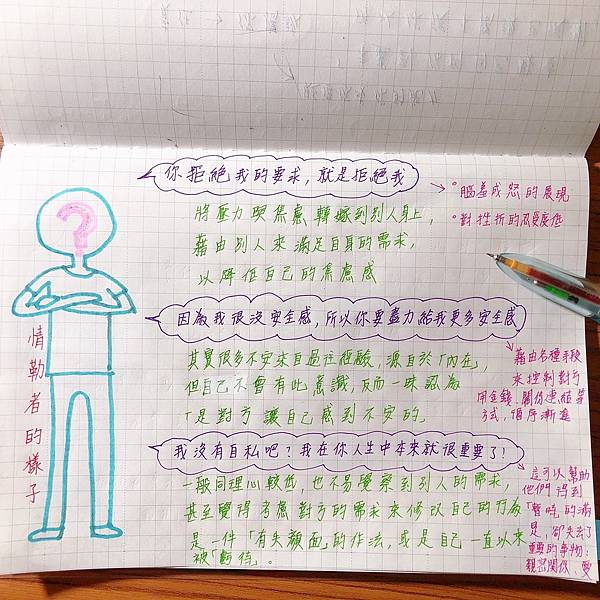 你拒絕我的要求，就是拒絕我
將壓力與焦慮轉嫁到別人身上，
藉由別人來滿足自身的需求，
以降低自己的焦慮感
°惱羞成怒的展現
°對挫折的忍受度低
因為我很沒安全感，所以你要盡力給我更多安全感
其實很多不安來自過往經驗，源自於「內在」，
但自己不會有此意識，反而一味認為
「是對方讓自己感到不安的。
藉由各種手段
來控制對方
用金錢、關係連結等
方式，循序漸進
我沒有自私吧？我在你人生中本來就很重要了！
一般同理心較低，也不易覺察到別人的需求，
甚至覺得考慮對方的需求來修改自己的行為
是一件「有失顏面」的作法，或是自己一直以來
被「虧待」。
這可以幫助
他們得到
「暫時」的滿
是，卻失去了
的事物：
親密關係、愛
情勒者的樣子